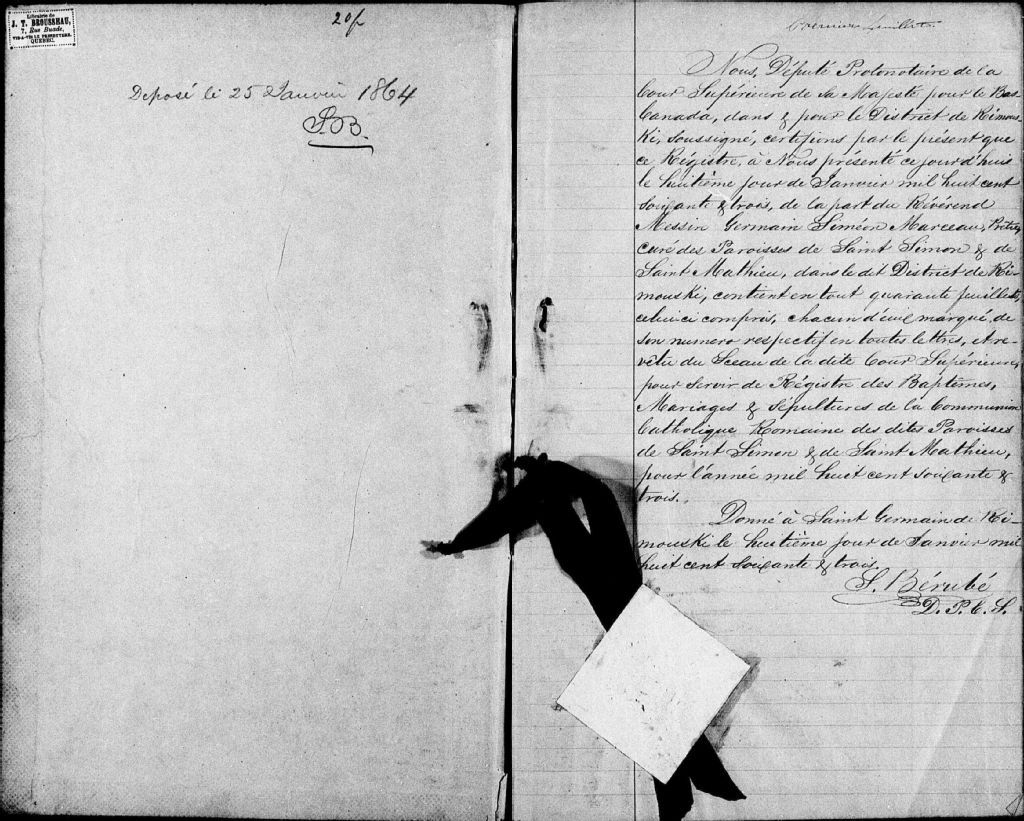 Librairie de
J. T. BROUSSEAU,
7, Rue Buade,
VIS-A-VIS LE PRESBYTERE,
QUEBEC.
20f
Deposé le 25 Janvier 1864
S.B.
Premier feuillet.
Nous, Député Protonotaire de la
Cour Supérieure de Sa Majesté pour le Bas
Canada, dans & pour le District de Rimous-
Ki, Soussigné, certifions par le présent que
ce Régistre, à Nous présenté ce jourd'huis
le huitième jour de Janvier mil huit cent
soixante & trois, de la part du Révérend
Messire Germain Siméon Marceau, Prêtre,
curé des Paroisses de Saint Simon & de
Saint Mathieu, dans le dit District de Ri-
mouski, contient en tout quarante feuillets,
celui-ci compris, chacun d'eux marqué de
son numero respectif en toutes lettres, et re-
vêtu du Sceau de la dite Cour Supérieure,
pour servir de Régistre des Baptêmes,
Mariages & Sépultures de la Communion
Catholique Romaine des dites Paroisses
de Saint Simon & de Saint Mathieu,
pour l'année mil huit cent soixante &
trois.
Donné à Saint Germain de Ri-
mouski le huitième jour de Janvier mil
huit cent soixante & trois.
S. Bérubé
D. P. C. S.